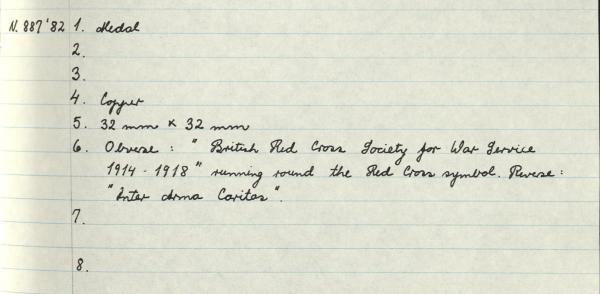 N. 887'82 1. Medal
2.
3.
4. Copper
5. 32 mm × 32 mm
6. Obverse : "British Red Cross Society for War Service
1914 - 1918" running round the Red Cross symbol. Reverse :
"Inter Arma Caritas".
7.
8.